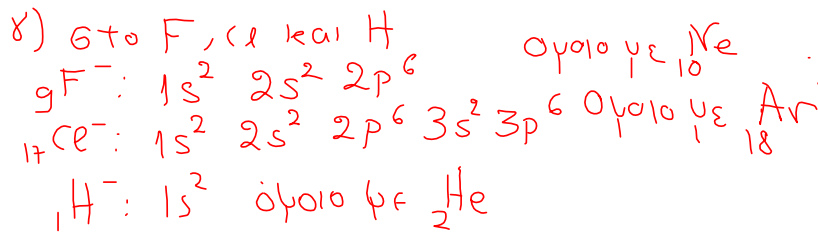 γ) στο F, Cl και H
₉F⁻: 1s² 2s² 2p⁶ όμοιο με ₁₀Ne
₁₇Cl⁻: 1s² 2s² 2p⁶ 3s² 3p⁶ όμοιο με ₁₈Ar
₁H⁻: 1s² όμοιο με ₂He